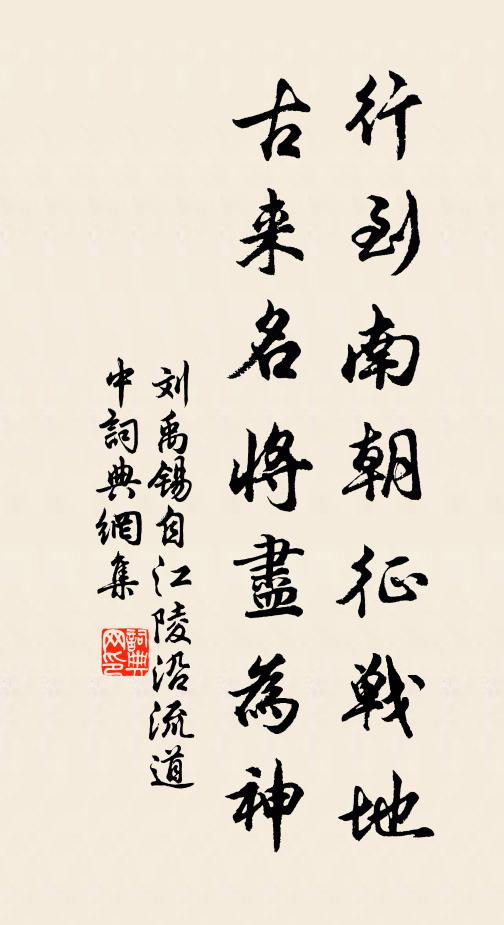 行到南朝征戰地
古来名将盡為神
刘禹锡自江陵沿流道
中詞典網集
詞典网印